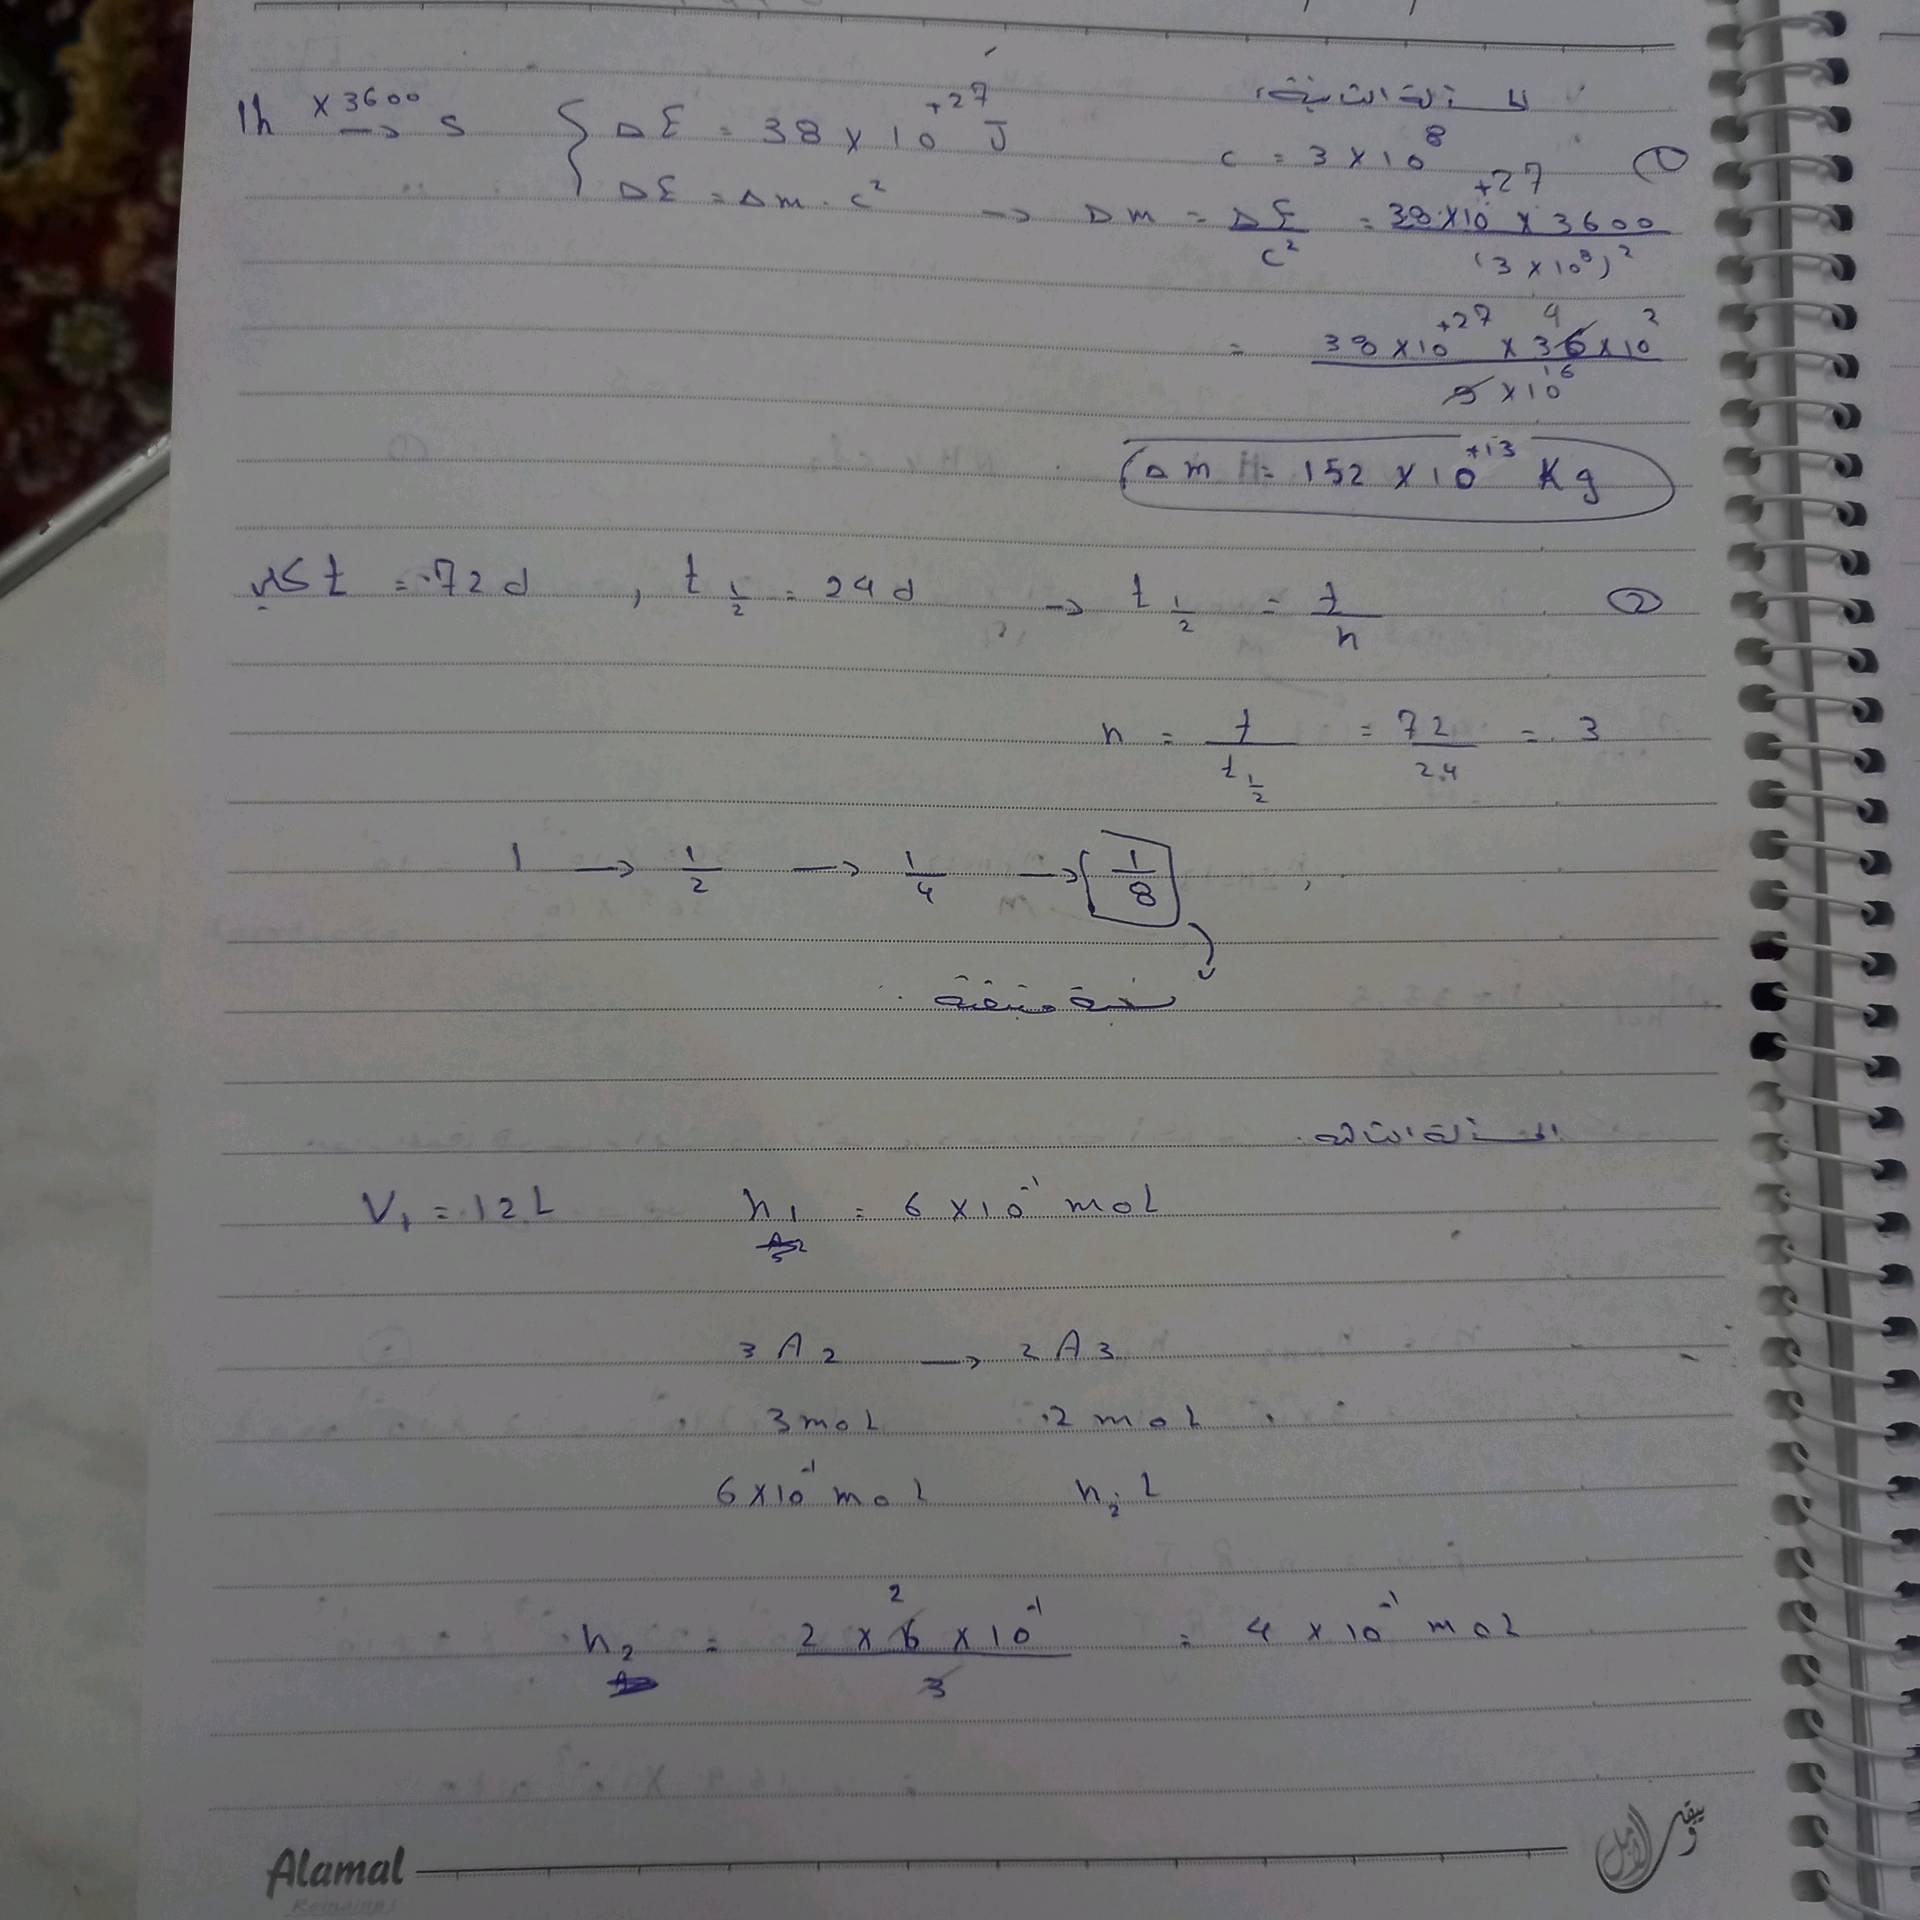 المسألة الثانية:
① c = 3 × 10⁸
1h ×3600 → s { ΔE = 38 × 10⁺²⁷ J
ΔE = Δm . c² → Δm = ΔE / c² = 38 × 10⁺²⁷ × 3600 / (3 × 10⁸)²
= 38 × 10⁺²⁷ × 36 4 × 10² / 9 × 10¹⁶
Δm = 152 × 10⁺¹³ Kg
② t = 72 d , t 1/2 = 24 d → t 1/2 = t / n
n = t / t 1/2 = 72 / 24 = 3
1 → 1/2 → 1/4 → 1/8
نسبة متبقية
المسألة الثالثة
V₁ = 12 L n₁ = 6 × 10⁻¹ mol
3 A₂ → 2 A₃
3 mol 2 mol
6 × 10⁻¹ mol n₂
n₂ = 2 × 6 2 × 10⁻¹ / 3 = 4 × 10⁻¹ mol
Alamal